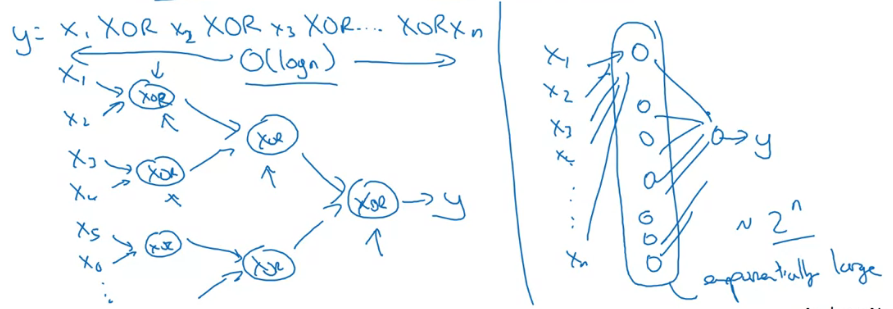 y = x₁ XOR x₂ XOR x₃ XOR .... XOR xₙ
O(log n)
x₁
x₂
XOR
XOR
x₃
x₄
XOR
XOR
y
x₅
x₆
XOR
XOR
x₁
x₂
x₃
x₄
xₙ
y
~ 2ⁿ
exponentially large